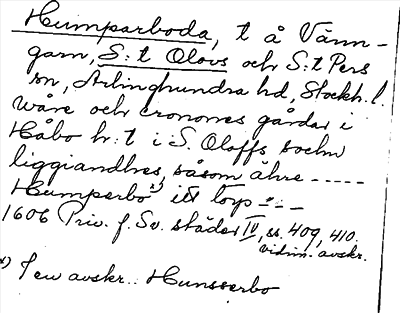 Humparboda, t å Vänn-
garn, S:t Olovs och S:t Pers
sn, Arlinghundra hd, Stockh. l.
wåre och cronones gårdar i
Håbo hr:t i S. Oloffs sochn
liggiandhes, såsom ähre -----
Humperbo x) itt torp ---
1606 Priv. f. Sv. städer IV, ss. 409, 410.
vidim. avskr.
x) I en avskr.: Hunsserbo